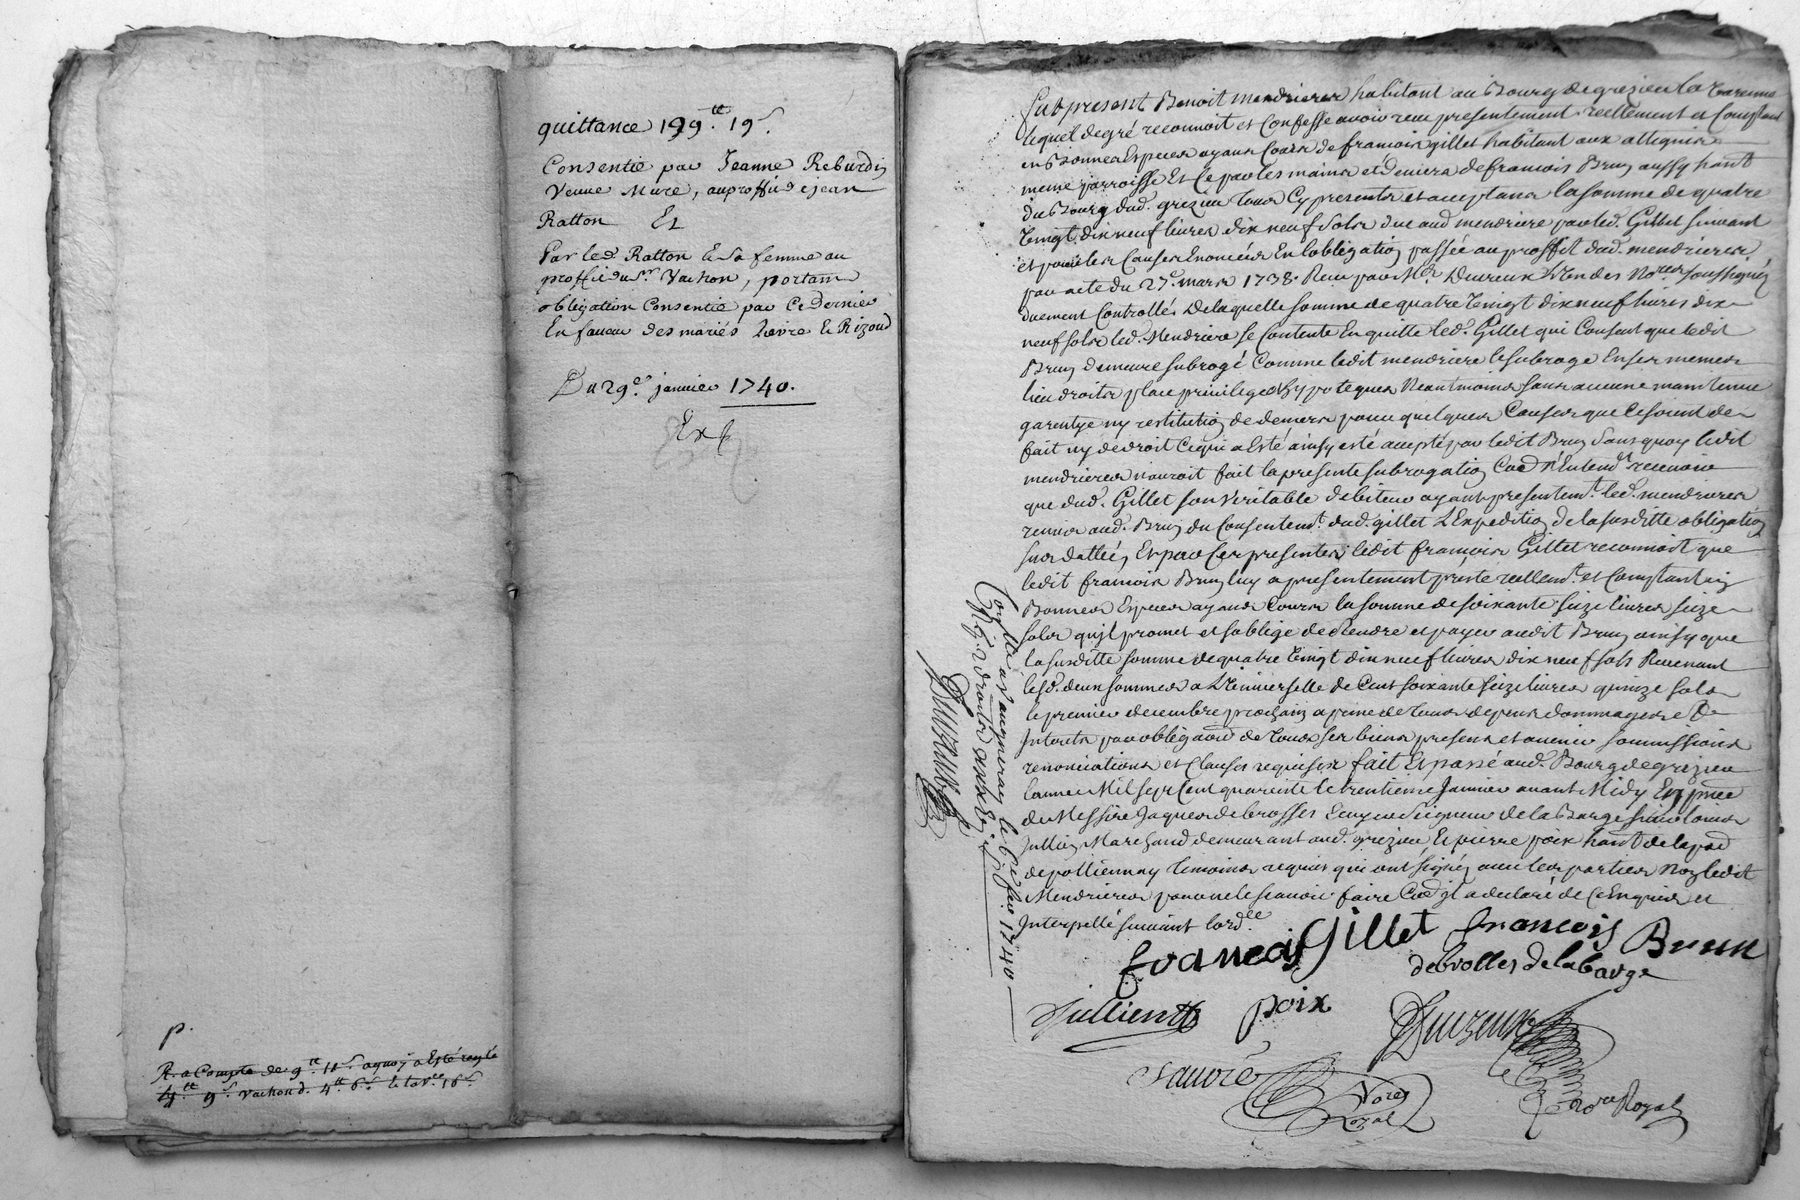 quittance 199.tt 19.s
Consentie par Jeanne Reburdin
Veuve Mure, au proffit de jean
Ratton Et
Par led. Ratton & sa femme au
proffit du Sr. Vachon, portant
obligation Consentie par Ce Dernier
En faveur des mariés Favre & Rizoud
Du 29e. janvier 1740.
Ex
p.
R. a Compte de 9.tt 10.s aquoy a Esté reglé
4.tt 9.s Vachon d. 4.tt 6.s le 16.s
Fut present Benoit mendrieres habitant au Bourg de grezieu la varenne
lequel de gré reconnoit et Confesse avoir receu presentement reellement et Comptant
en Bonnes Especes ayant Cours de francois gillet habitant aux attignies
meme parroisse Et Ce par les mains et deniers de francois Brun aussy hant.
du Bourg dud. grezieu tous Cy presents et acceptans la somme de quatre
vingt dix neuf livres dix neuf sols due aud mendriere par led. Gillet suivant
et pour les Causes Enoncées En l'obligation passée au proffit dud. mendrieres
par acte du 27e. mars 1738. Receu par Me. Duvreux L'un des Nores. soussignés
duement Controllé. De laquelle somme de quatre vingt dix neuf livres dix
neuf sols led. Mendriere se Contente En quitte led. Gillet qui Consent que ledit
Brun demeure subrogé Comme ledit mendriere le subroge En ses memes
lieu droits place privileges & hypoteques Neantmoins sans aucune maintenue
garentye ny restitution de deniers pour quelques Causes que Ce soient de
fait ny de droit Ce qui a Esté ainsy esté accepté par ledit Brun Sans quoy ledit
mendrieres n'auroit fait la presente subrogation Led. n'Entendt. recevoir
que dud. Gillet son veritable debiteur ayant presentemt. led. mendrieres
remis aud. Brun du Consentemt. dud. gillet L'Expedition de la susditte obligation
sus dattée, Et par Ces presentes ledit francois Gillet reconnoit que
ledit francois Brun luy a presentement presté reellemt. et Comptant en
Bonnes Especes ayant Cours la somme de soixante seize livres seize
sols qu'il promet et s'oblige de Rendre et payer audit Brun ainsy que
la susditte somme de quatre vingt dix neuf livres dix neuf sols Revenant
lesd. deux sommes a L'Universelle de Cent soixante seize livres quinze sols
le premier decembre prochain a peine de tous depens dommages &
Interets par obligaon. de tous ses biens presents et avenir soumissions
renonciations et Clauses requises fait Et passé aud. Bourg de grezieu
l'année Mil sept Cent quarente le trentieme Janvier avant Midy En pnce
de Messire Jaques de brosses Ecuyer Seigneur de la Barge sieur louis
Jullien Marchand demeurant aud. grezieu Et pierre poix hant. de la psse
de pollionnay temoins requis qui ont signés avec les parties Non ledit
Mendrieres pour ne le scavoir faire Comme il a declaré de Ce Enquis et
Interpellé suivant l'ord.ce
francois Gillet francois Brun
debrosses de la barge
Jullien poix Duvreux
Fauvre
Nore. Royal
Nore. Royal
Conllé a vaugneray le 1740
Duvreux